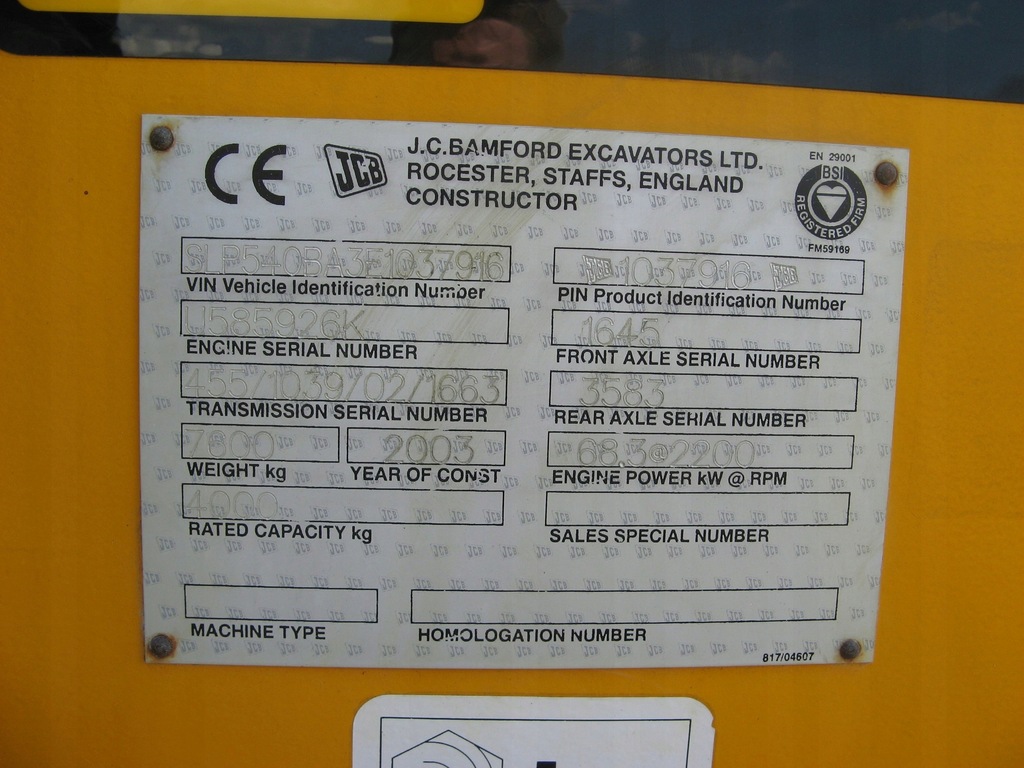 CE
JCB
J.C.BAMFORD EXCAVATORS LTD.
ROCESTER, STAFFS, ENGLAND
CONSTRUCTOR
EN 29001
BSI
REGISTERED FIRM
FM59169
SLP540BA3E1037916
VIN Vehicle Identification Number
JCB 1037916 JCB
PIN Product Identification Number
U585926K
ENGINE SERIAL NUMBER
1645
FRONT AXLE SERIAL NUMBER
455/1039/02/1663
TRANSMISSION SERIAL NUMBER
3583
REAR AXLE SERIAL NUMBER
7600
WEIGHT kg
2003
YEAR OF CONST
68.3@2200
ENGINE POWER kW @ RPM
4000
RATED CAPACITY kg
SALES SPECIAL NUMBER
MACHINE TYPE
HOMOLOGATION NUMBER
817/04607